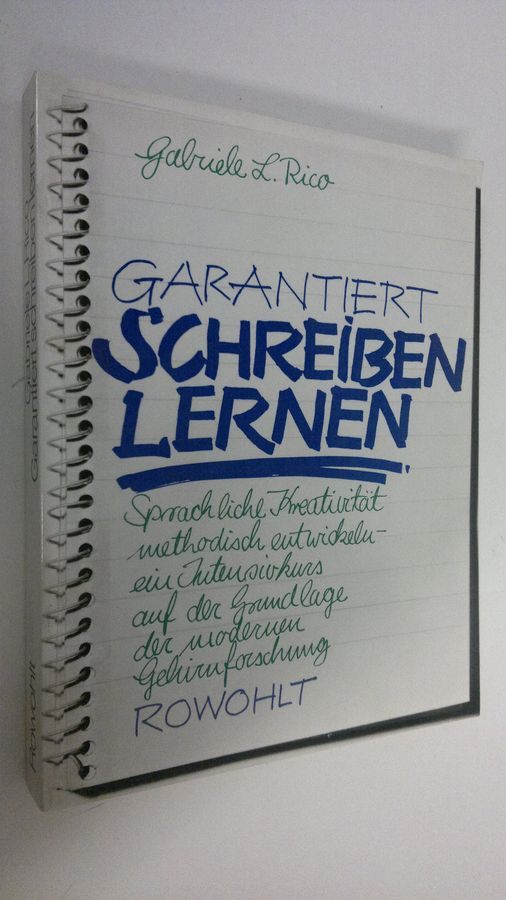 Gabriele L. Rico
GARANTIERT
SCHREIBEN
LERNEN
Sprachliche Kreativität
methodisch entwickeln –
ein Intensivkurs
auf der Grundlage
der modernen
Gehirnforschung
ROWOHLT
Gabriele L. Rico
Garantiert schreiben lernen
Rowohlt